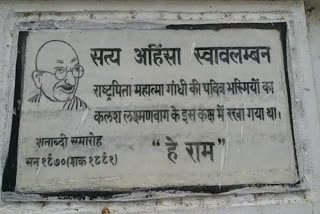 सत्य अहिंसा स्वावलम्बन
राष्ट्रपिता महात्मा गांधी की पवित्र भस्मियों का
कलश लक्ष्मणबाग के इस कक्ष में रखा गया था।
शताब्दी समारोह
सन् १९७० (शक १८९१)
"हे राम"